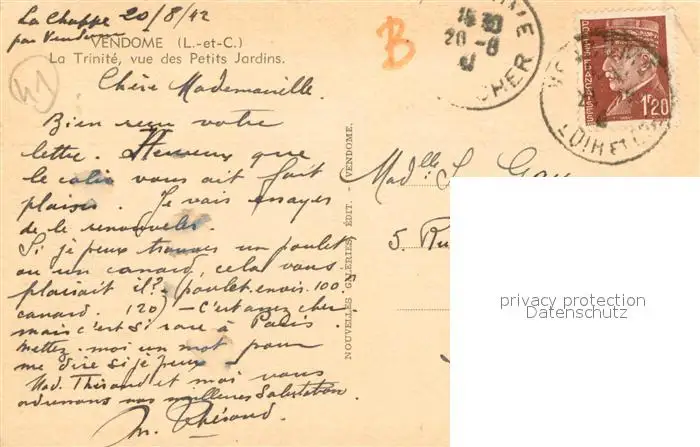 La Chappe 20/8/42
par Vendôme
VENDOME (L.-et-C.)
La Trinité, vue des Petits Jardins.
41
B
Chère Mademoiselle.
Bien reçu votre
lettre. Heureux que
le colis vous ait fait
plaisir. Je vais essayer
de le renouveler.
Si je peux trouver un poulet
ou un canard, cela vous
plairait il? (poulet. envis. 100.
canard. 120) - C'est assez cher
mais c'est si rare à Paris.
Mettez-moi un mot pour
me dire si je peux
Mad. Thésaud et moi vous
adressons nos meilleures Salutations.
M. Thésaud.
NOUVELLES GALERIES, ÉDIT. - VENDOME.
Madlle S.
5. Ru
16 30
20-8
CHER
LOIR ET
1F20
privacy protection
Datenschutz